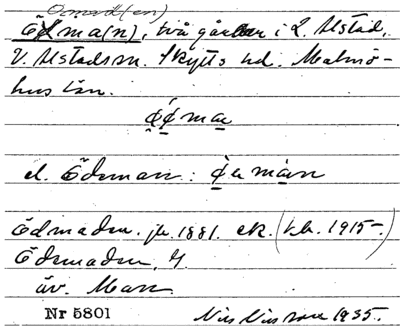 Ödmad(en)
Ödma(n), två gårdar i L. Alstad,
V. Alstads sn. Skytts hd. Malmö-
hus län.
el. Ödeman:
Ödmaden. jb. 1881. ek. (kb. 1915-.)
Ödmaden, 4
äv. Man
Nr 5801 1935.